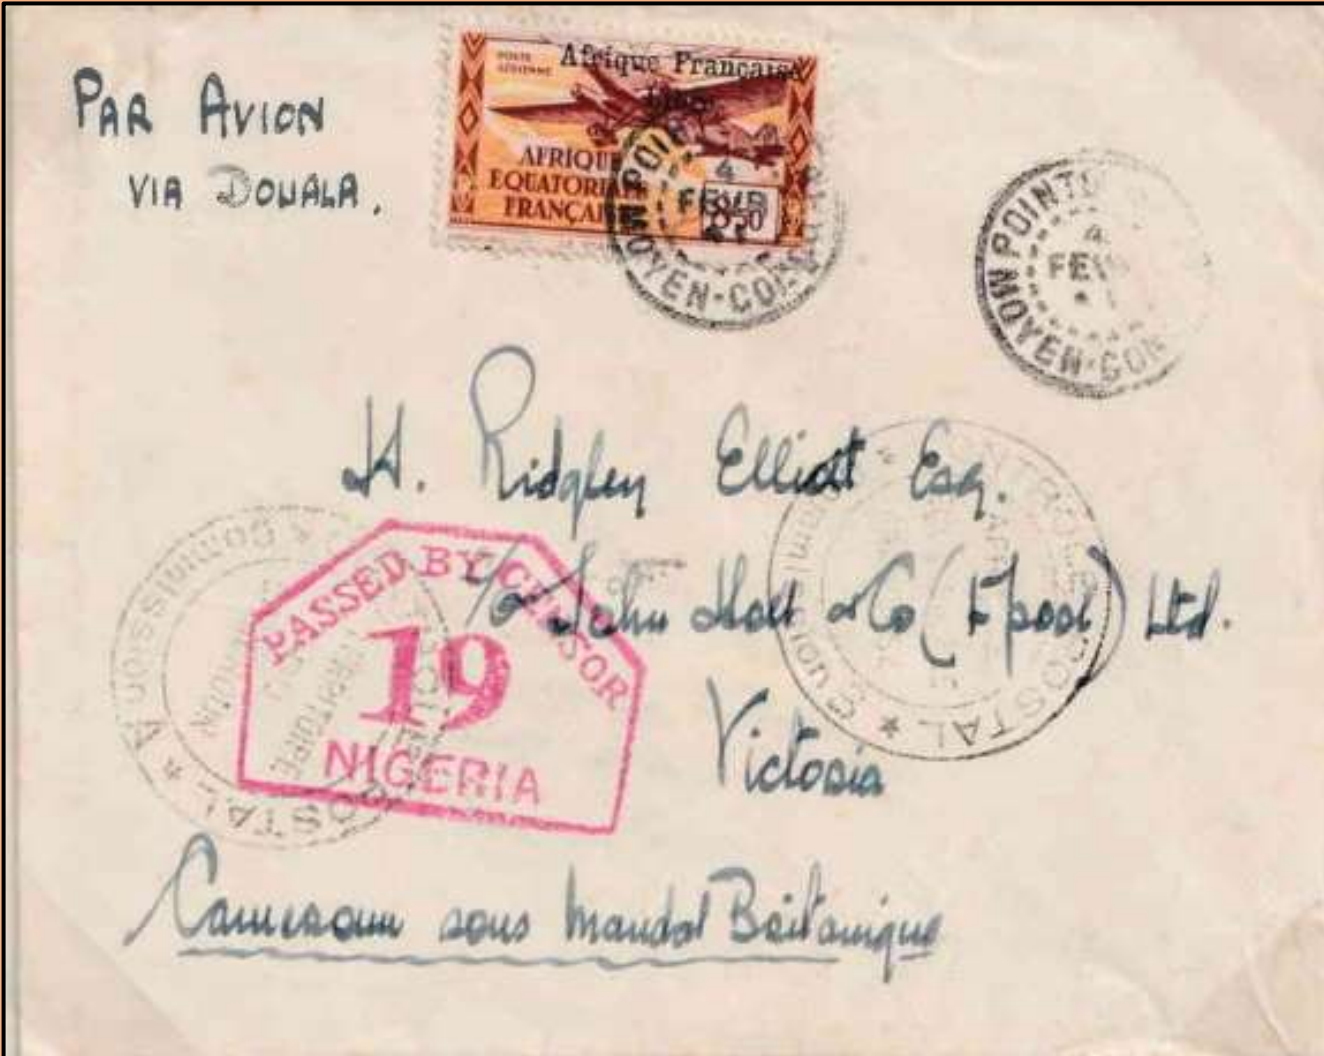 PAR AVION
VIA DOUALA.
POSTE
AÉRIENNE
Afrique Française
AFRIQUE
EQUATORIALE
FRANÇAISE
4
FEVR
MOYEN-CON
POINT
4
FEV
MOYEN-CON
H. Ridgley Elliott Esq.
c/o John Holt & Co (L'pool) Ltd.
Victoria
Cameroun sous Mandat Britannique
PASSED BY CENSOR
19
NIGERIA
Commission
POSTAL
CONTROLE POSTAL
Commission